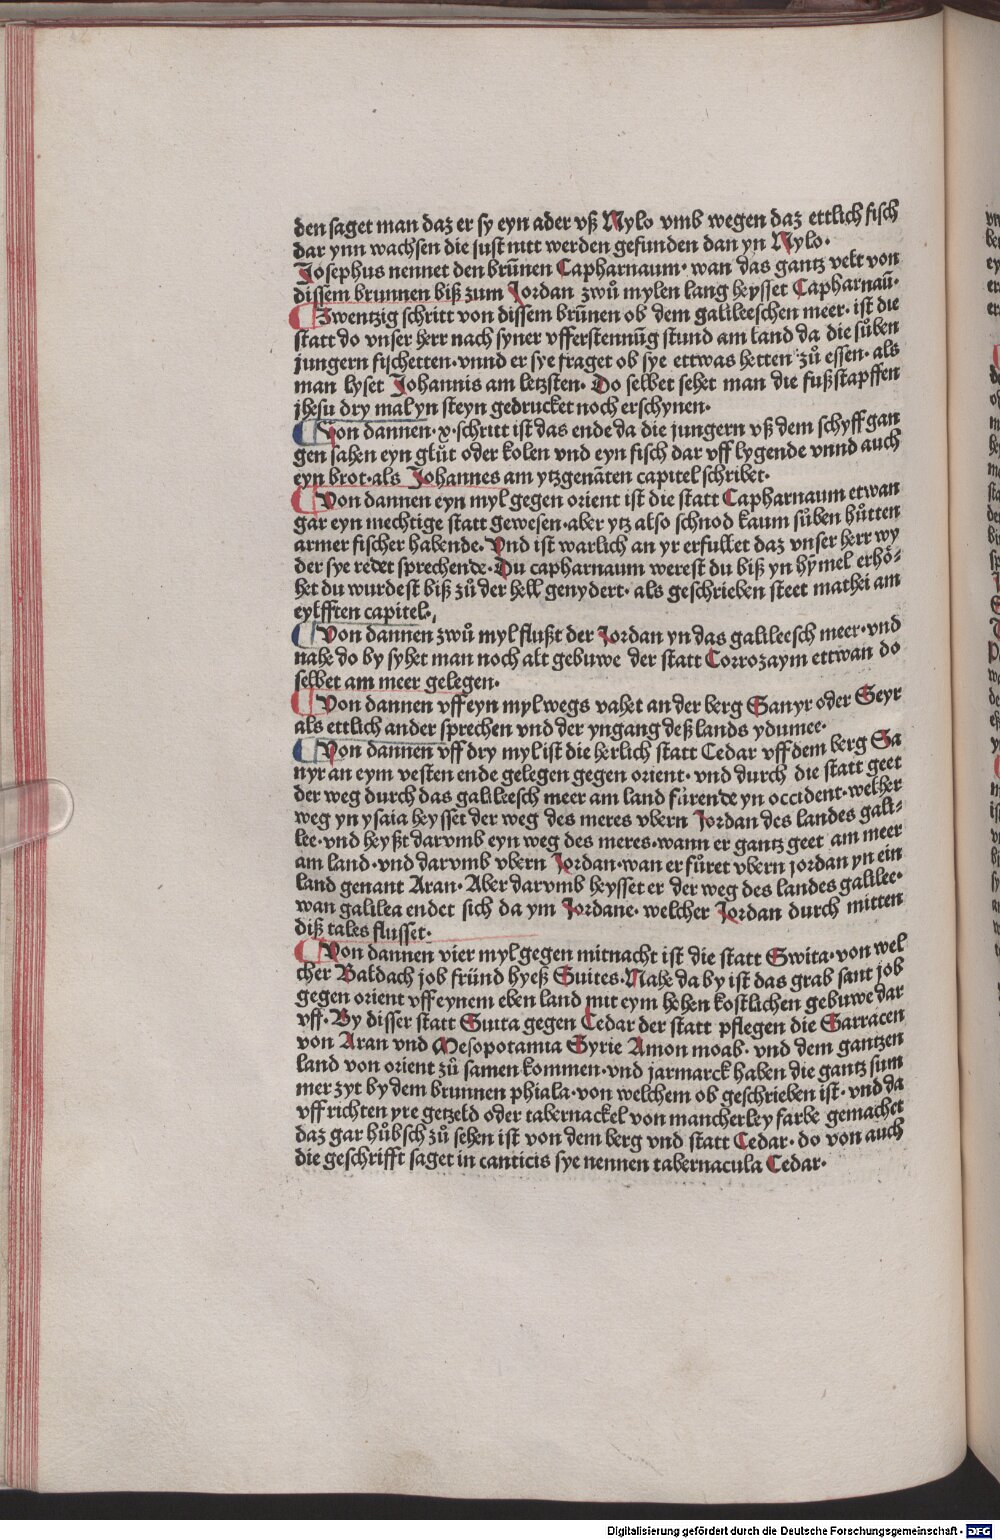 den saget man daz er sy eyn ader vß Nylo vmb wegen daz ettlich fisch
dar ynn wachsen die sust nitt werden gefunden dan yn Nylo·
Josephus nennet den brūnen Capharnaum· wan das gantz velt von
dissem brunnen biß zum Jordan zwů mylen lang heysset Capharnaū·
Zwentzig schritt von dissem brūnen ob dem galileeschen meer· ist die
statt do vnser herr nach syner vfferstennūg stund am land da die sůben
jungern fischetten· vnnd er sye fraget ob sye ettwas hetten zů essen· als
man lyset Johannis am letzsten· Do selbet sehet man die fußstapffen
jhesu dry mal yn steyn gedrucket noch erschynen·
Von dannen· x· schritt ist das ende da die jungern vß dem schyff gan
gen sahen eyn glůt oder kolen vnd eyn fisch dar vff lygende vnnd auch
eyn brot· als Johannes am ytzgenāten capitel schribet·
Von dannen eyn myl gegen orient ist die statt Capharnaum etwan
gar eyn mechtige statt gewesen· aber ytz also schnod kaum sůben hůtten
armer fischer habende· Vnd ist warlich an yr erfullet daz vnser herr wy
der sye redet sprechende· Du capharnaum werest du biß yn hymel erhö⸗
het du wurdest biß zů der hell genydert· als geschrieben steet mathei am
eylfften capitel·
Von dannen zwů myl flußt der Jordan yn das galileesch meer· vnd
nahe do by syhet man noch alt gebuwe der statt Corrozaym ettwan do
selbet am meer gelegen·
Von dannen vff eyn myl wegs vahet an der berg Sanyr oder Seyr
als ettlich ander sprechen vnd der yngang deß lands ydumee·
Von dannen vff dry myl ist die herlich statt Cedar vff dem berg Sa
nyr an eym vesten ende gelegen gegen orient· vnd durch die statt geet
der weg durch das galileesch meer am land fürende yn occident· welher
weg yn ysaia heysset der weg des meres vbern Jordan des landes gali⸗
lee· vnd heyßt darvmb eyn weg des meres· wann er gantz geet am meer
am land· vnd darvmb vbern Jordan· wan er fůret vbern jordan yn ein
land genant Aran· Aber darvmb heysset er der weg des landes galilee·
wan galilea endet sich da ym Jordane· welcher Jordan durch mitten
diß tales flusset·
Von dannen vier myl gegen mitnacht ist die statt Swita· von wel
cher Baldach job fründ hyeß Suites· Nahe da by ist das grab sant job
gegen orient vff eynem eben land mit eym hehen kostlichen gebuwe dar
vff· By disser statt Suita gegen Cedar der statt pflegen die Sarracen
von Aran vnd Mesopotamia Syrie Amon moab· vnd dem gantzen
land von orient zů samen kommen· vnd jarmarck haben die gantz sum
mer zyt by dem brunnen phiala· von welchem ob geschrieben ist· vnd da
vff richten yre getzeld oder tabernackel von mancherley farbe gemachet
daz gar hůbsch zů sehen ist von dem berg vnd statt Cedar· do von auch
die geschrifft saget in canticis sye nennen tabernacula Cedar·
Digitalisierung gefördert durch die Deutsche Forschungsgemeinschaft - DFG